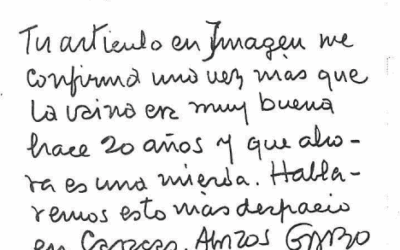 Tu artículo en Imagen me
confirma una vez más que
la vaina era muy buena
hace 20 años y que aho-
ra es una mierda. Habla-
remos esto más despacio
en Caracas. Abrazos GABO